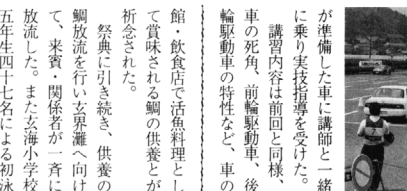 が準備した車に講師と一緒
に乗り実技指導を受けた。
講習内容は前回と同様、
車の死角、前輪駆動車、後
輪駆動車の特性など、車の
館・飲食店で活魚料理とし
て賞味される鯛の供養とが
祈念された。
祭典に引き続き、供養の
鯛放流を行い玄界灘へ向け
て、来賓・関係者が一斉に
放流した。また玄海小学校
五年生四十七名による初泳